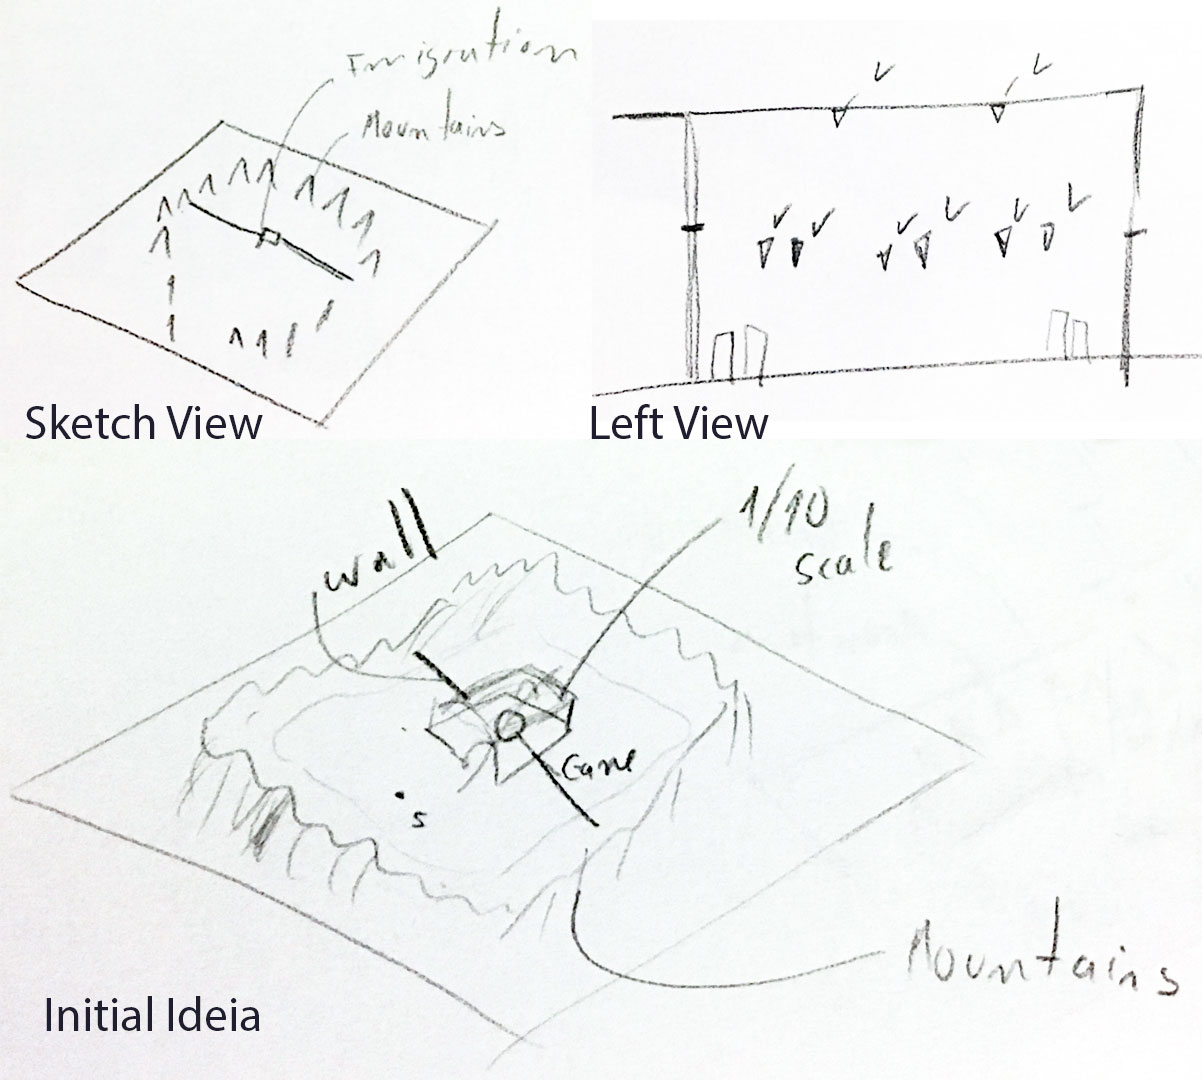 Imigration
Mountains
Sketch View
Left View
wall
1/10
scale
s
Mountains
Initial Ideia